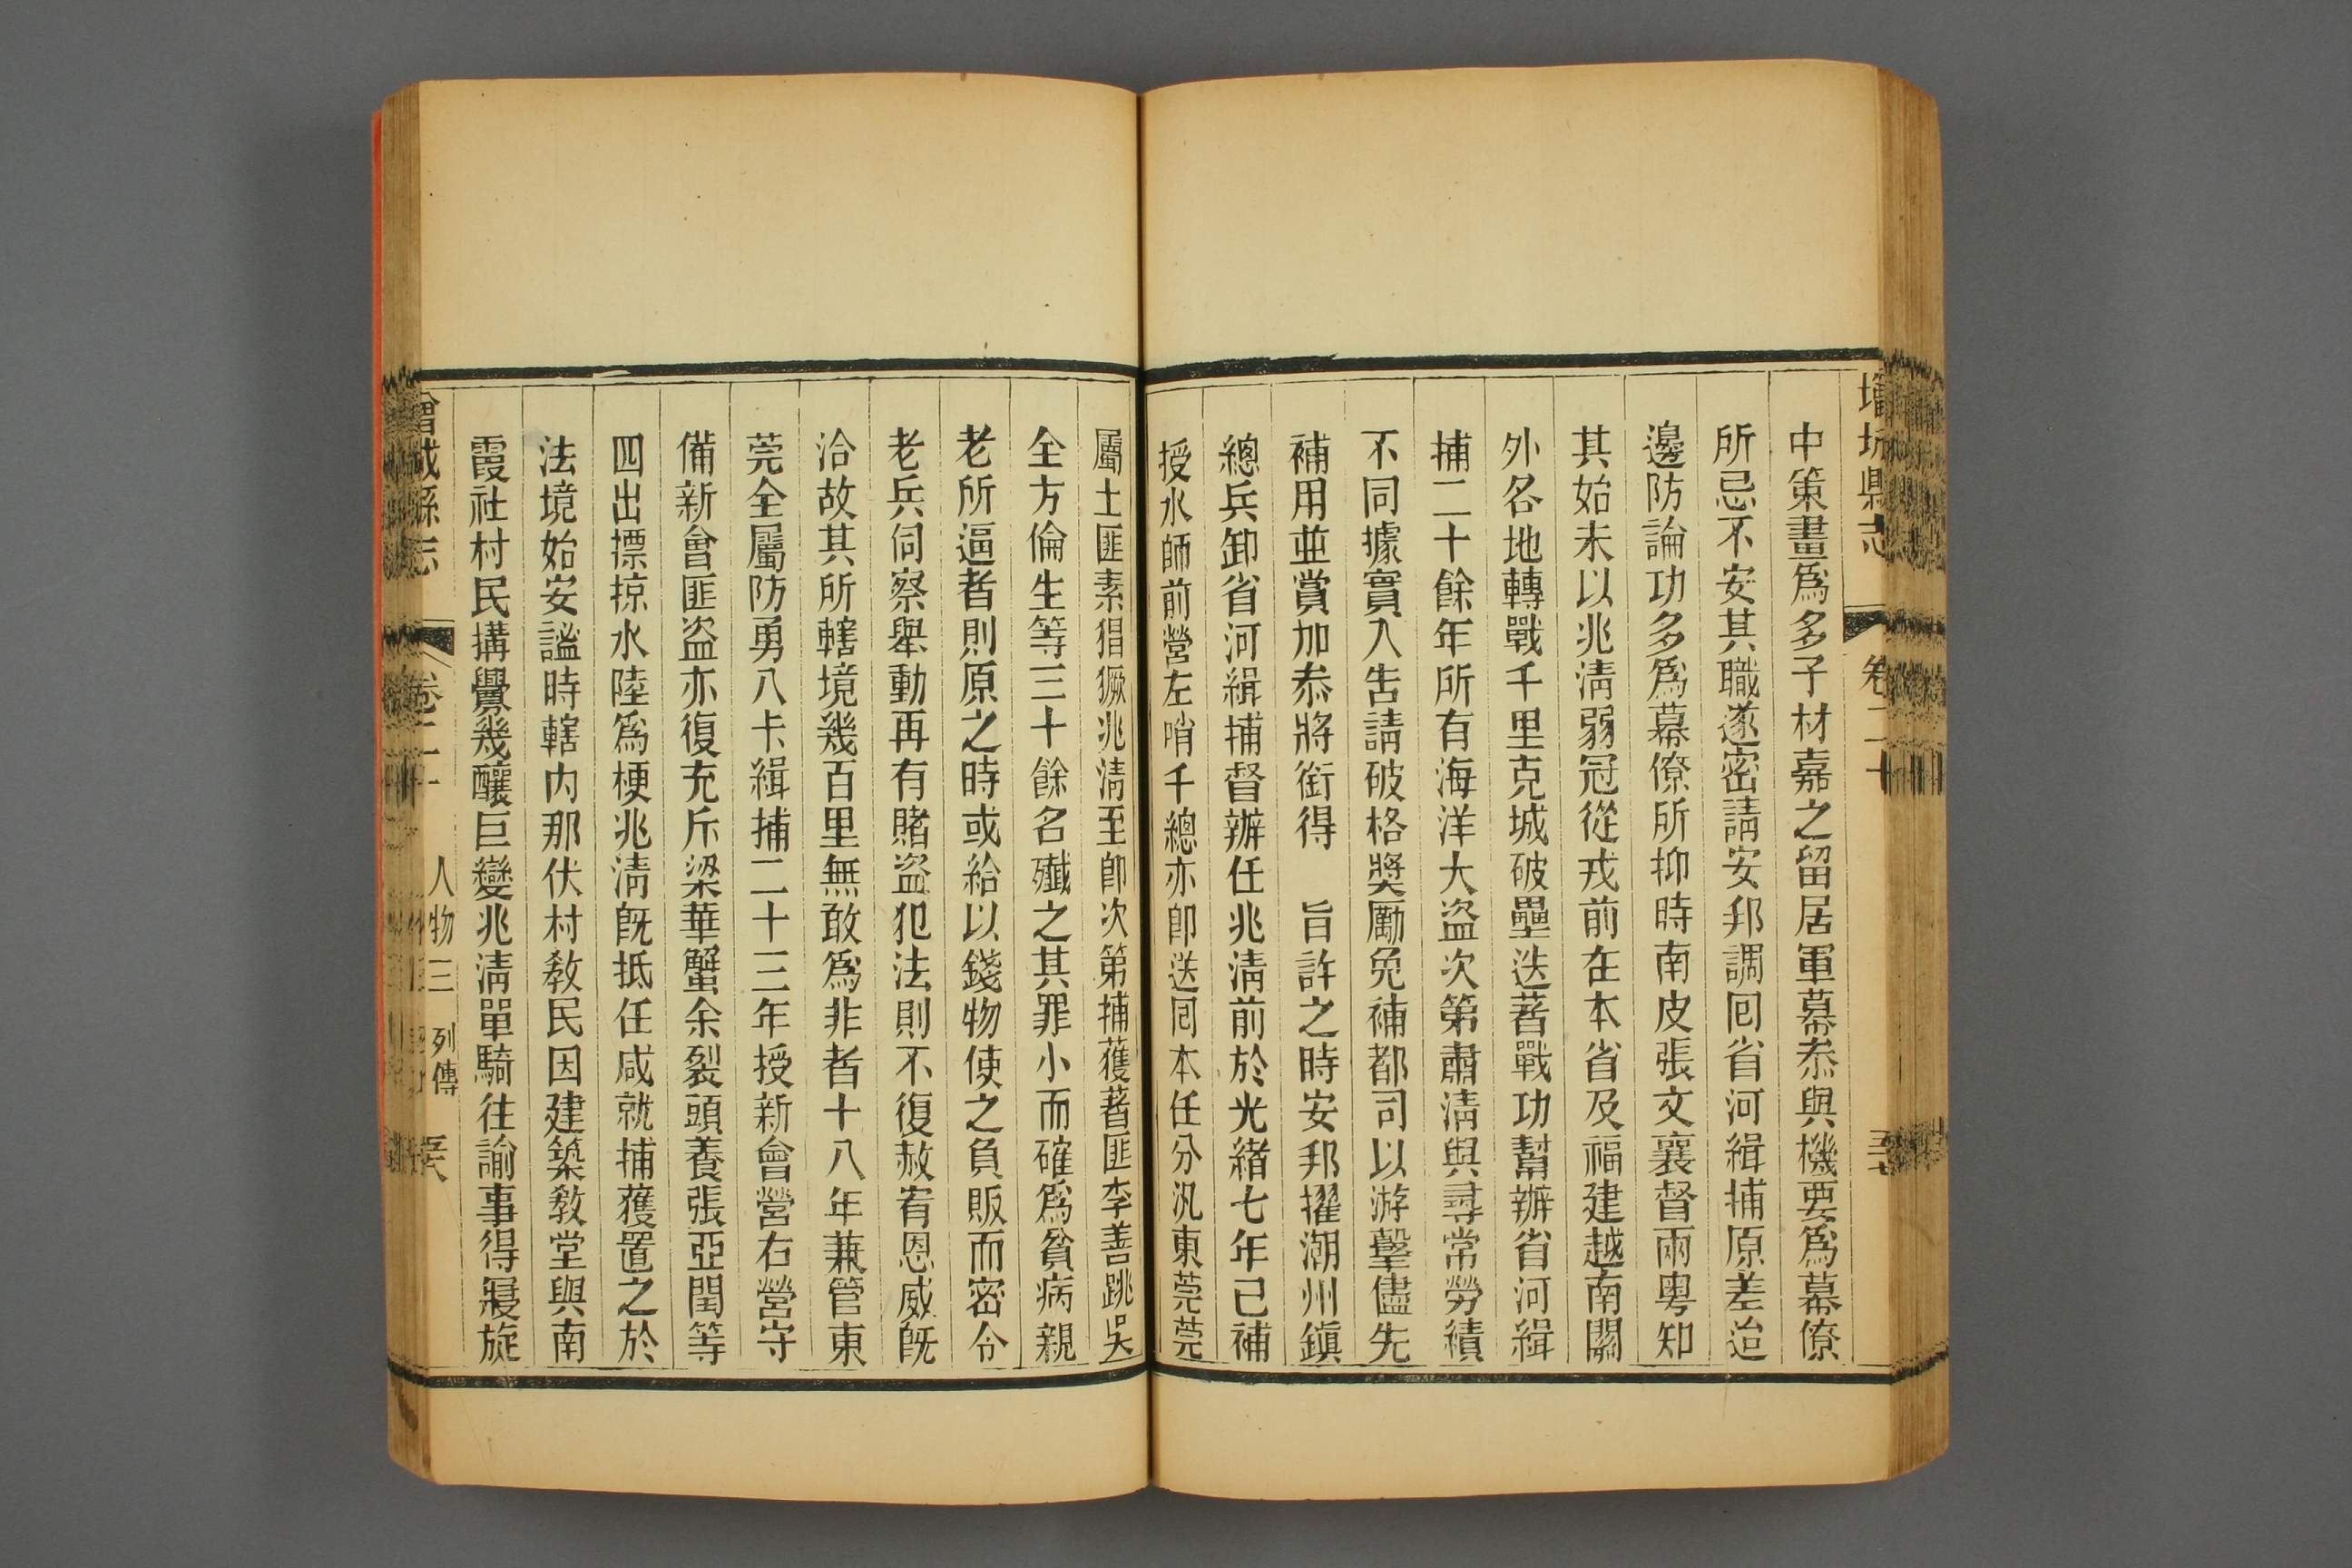 增城縣志
卷二十
中策畫爲多子材嘉之留居軍幕叅與機要爲幕僚
所忌不安其職遂密請安邦調囘省河緝捕原差迨
邊防論功多爲幕僚所抑時南皮張文襄督兩粵知
其始末以兆淸弱冠從戎前在本省及福建越南關
外各地轉戰千里克城破壘迭著戰功幫辦省河緝
捕二十餘年所有海洋大盜次第肅淸與尋常勞績
不同據實入吿請破格獎厲免補都司以游擊儘先
補用並賞加叅將銜得　旨許之時安邦擢潮州鎭
總兵卸省河緝捕督辦任兆淸前於光緒七年已補
授水師前營左哨千總亦卽送囘本任分汛東莞莞
屬土匪素猖獗兆淸至卽次第捕獲著匪李善跳吳
全方倫生等三十餘名殲之其罪小而確爲貧病親
老所逼者則原之時或給以錢物使之負販而密令
老兵伺察舉動再有賭盜犯法則不復赦宥恩威旣
洽故其所轄境幾百里無敢爲非者十八年兼管東
莞全屬防勇八卡緝捕二十三年授新會營右營守
備新會匪盜亦復充斥梁華蟹余裂頭養張亞閏等
四出摽掠水陸爲梗兆淸旣抵任咸就捕獲置之於
法境始安謐時轄内那伏村敎民因建築敎堂與南
霞社村民搆釁幾釀巨變兆淸單騎往諭事得寢旋
增城縣志
卷二十
人物三
列傳